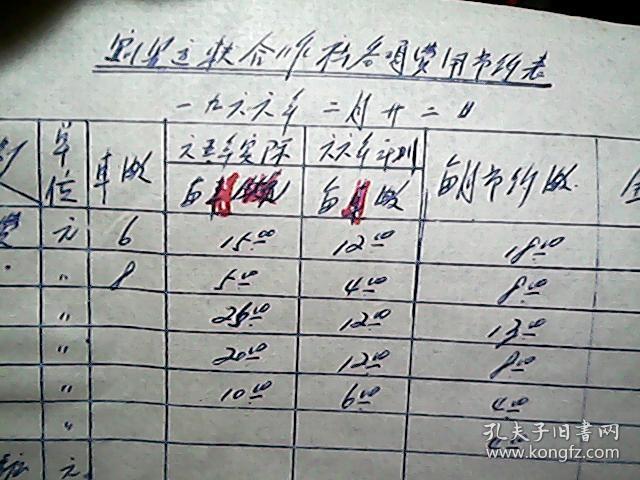 运联合作社各项费用节约表
一九六六年 二月廿二日
单位 车数 六五年实际 六六年计划 每月节约数
每 每月数
费 元 6 15.00 12.00 18.00
〃 8 5.00 4.00 8.00
〃 25.00 12.00 13.00
〃 20.00 12.00 8.00
〃 10.00 6.00 4.00
〃
元
孔夫子旧书网
www.kongfz.com